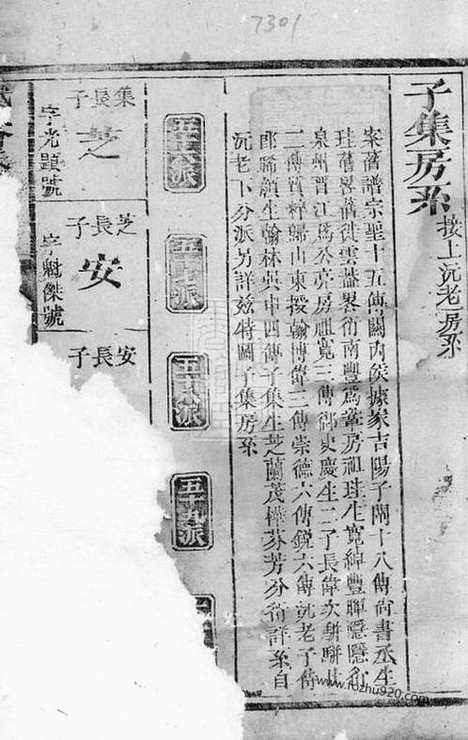 7301
子集房系 接上沅老房系
案舊譜宗聖十五傳關內侯據家吉陽子闡十八傳尚書丞生
珪舊畧舊徙雲蓋畧衍南豐為葦房祖珪生寬綽豐暉隱隱衍
泉州晋江為公亮房祖寬三傳御史慶生二子長偉次駢駢
二傳質粹歸山東授翰博偉三傳崇德六傳銳六傳沅老子傳
郎 生翰林英申四傳子集生芝蘭茂樺芬芳分衍詳系自
沅老下分派另詳兹特圖子集房系
五十六派
五十七派
五十八派
五十九派
集長子
芝
字光題號
芝長子
安
字魁傑號
安長子
www.fozhu920.com